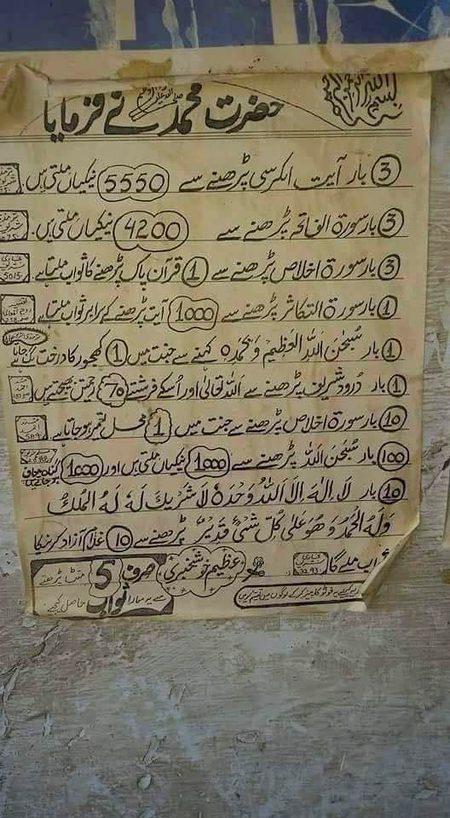 بسم اللہ الرحمن الرحیم
حضرت محمدﷺ نے فرمایا
3 بار آیت الکرسی پڑھنے سے 5550 نیکیاں ملتی ہیں.
3 بار سورۃ الفاتحہ پڑھنے سے 4200 نیکیاں ملتی ہیں.
3 بار سورۃ اخلاص پڑھنے سے 1 قرآن پاک پڑھنے کا ثواب ملتا ہے.
1 بار سورۃ التکاثر پڑھنے سے 1000 آیت پڑھنے کے برابر ثواب ملتا ہے.
1 بار سُبْحٰنَ اللہِ العَظِیْمِ وَ بِحَمْدِہٖ کہنے سے جنت میں 1 کھجور کا درخت لگ جاتا
1 بار درود شریف پڑھنے سے اللہ تعالیٰ اور اسکے فرشتے 70 رحمتیں بھیجتے ہیں
10 بار سورۃ اخلاص پڑھنے سے جنت میں 1 محل تعمیر ہو جاتا ہے.
100 بار سُبْحٰنَ اللہِ پڑھنے سے 1000 نیکیاں ملتی ہیں اور 1000 گناہ معاف ہو جاتے ہیں
10 بار لَا اِلٰہَ اِلَّا اللہُ وَحْدَہٗ لَا شَرِیْكَ لَهٗ لَهُ الْمُلْكُ
وَلَهُ الْحَمْدُ وَھُوَ عَلٰی كُلِّ شَیْئٍ قَدِیْرٌ پڑھنے سے 10 غلام آزاد کرنیکا
ثواب ملے گا
عظیم خوشخبری صرف 5 منٹ پڑھنے
سے یہ سارا ثواب حاصل کیجیے